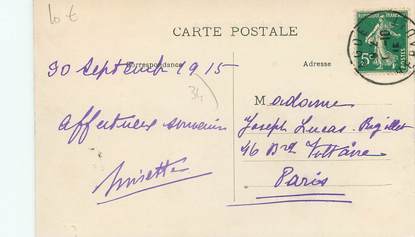 10 €
CARTE POSTALE
Correspondance
Adresse
5c
30 Septemb 1915
34
Affectueux souvenirs
Madame
Joseph Lucas-
46 Bd Voltaire
Paris